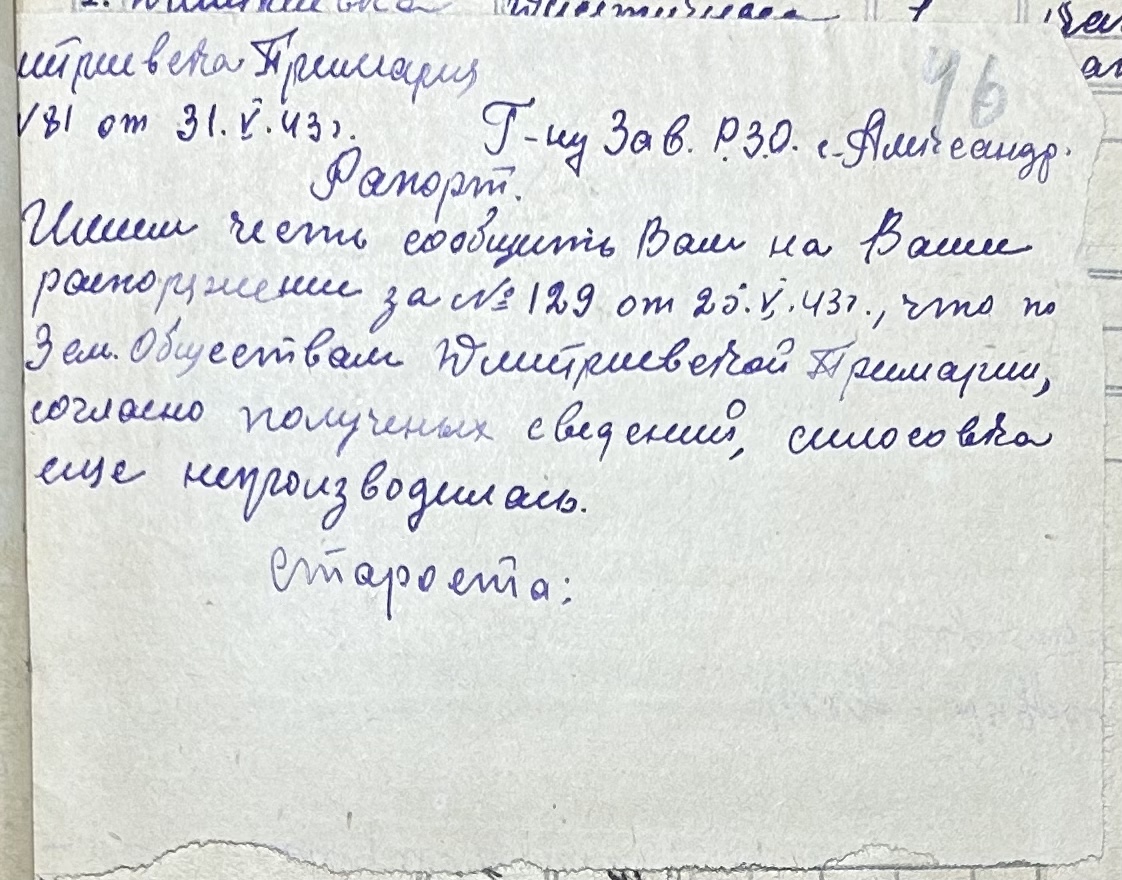 митриевска Примария
№81 от 31.V.43г.
46
Г-ну Зав. Р.З.О. с. Александр.
Рапорт.
Имеем честь сообщить Вам на Ваше
распоряжение за № 129 от 25.V.43г., что по
Зем. Обществам Дмитриевской Примарии,
согласно полученых сведений, силосовка
еще непроизводилась.
Староста: